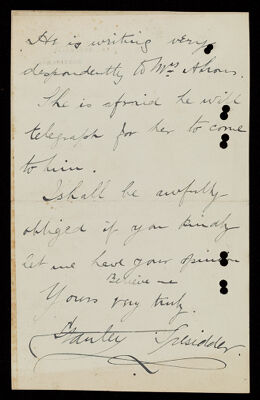 He is writing very
despondently to Mrs Ahrons.
She is afraid he will
telegraph for her to come
to him.
I shall be awfully
obliged if you kindly
let me have your opinion
Believe me
Yours very truly
Stanley Tresidder.